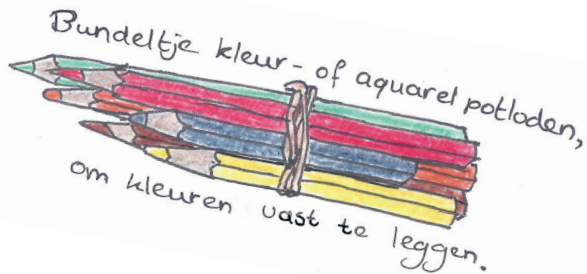 Bundeltje kleur- of aquarel potloden,
om kleuren vast te leggen.